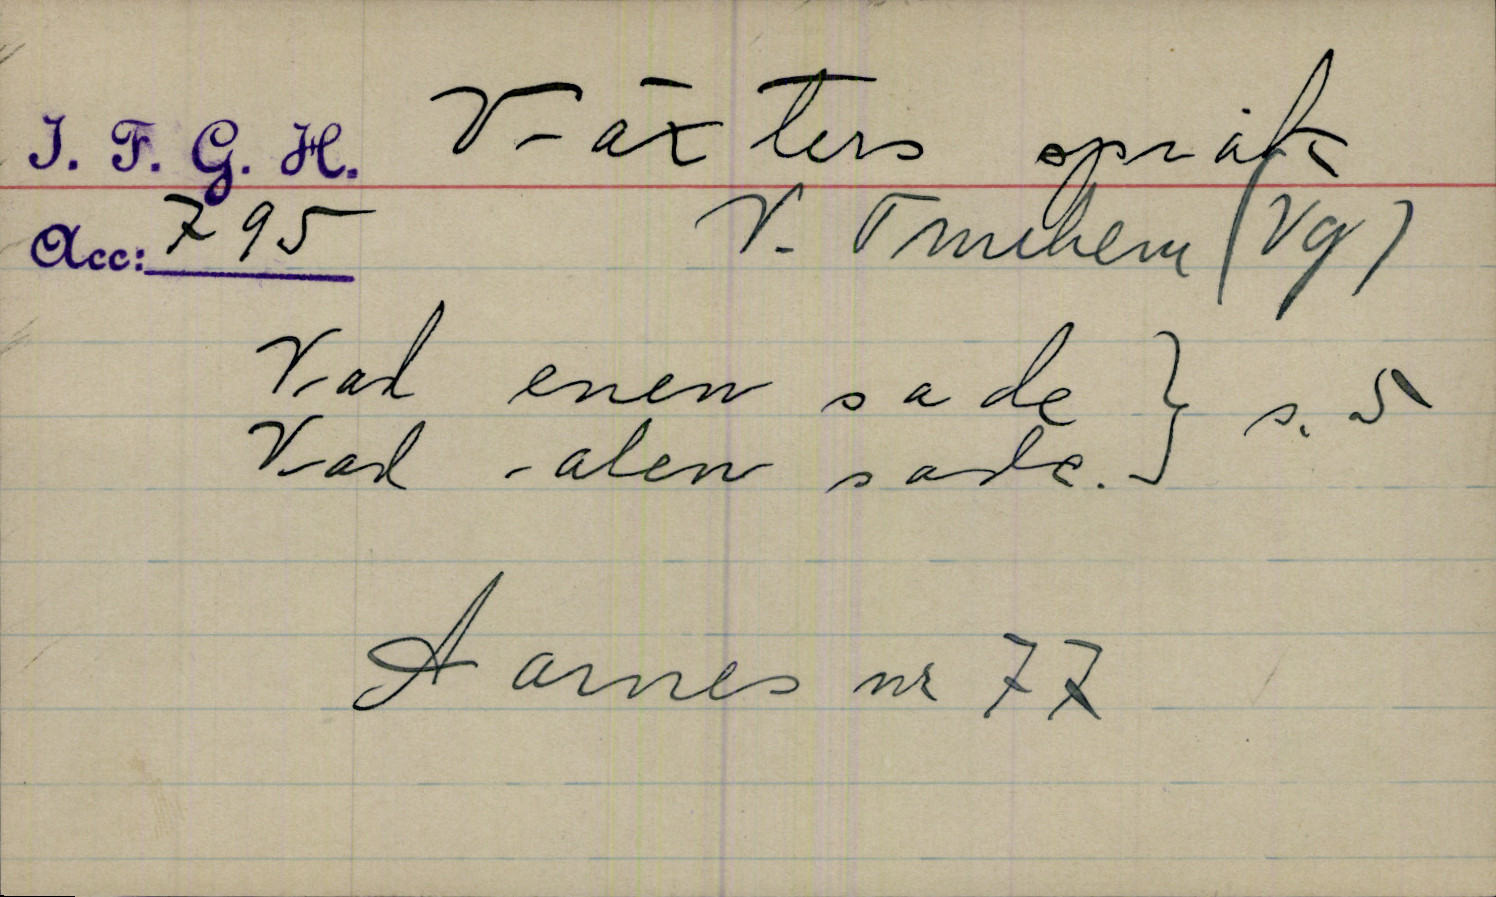 I. F. G. H.
Växters språk
Acc: 795
V. Tunhem (Vg)
Vad enen sade } s. 5
Vad alen sade.
Aarnes nr 77